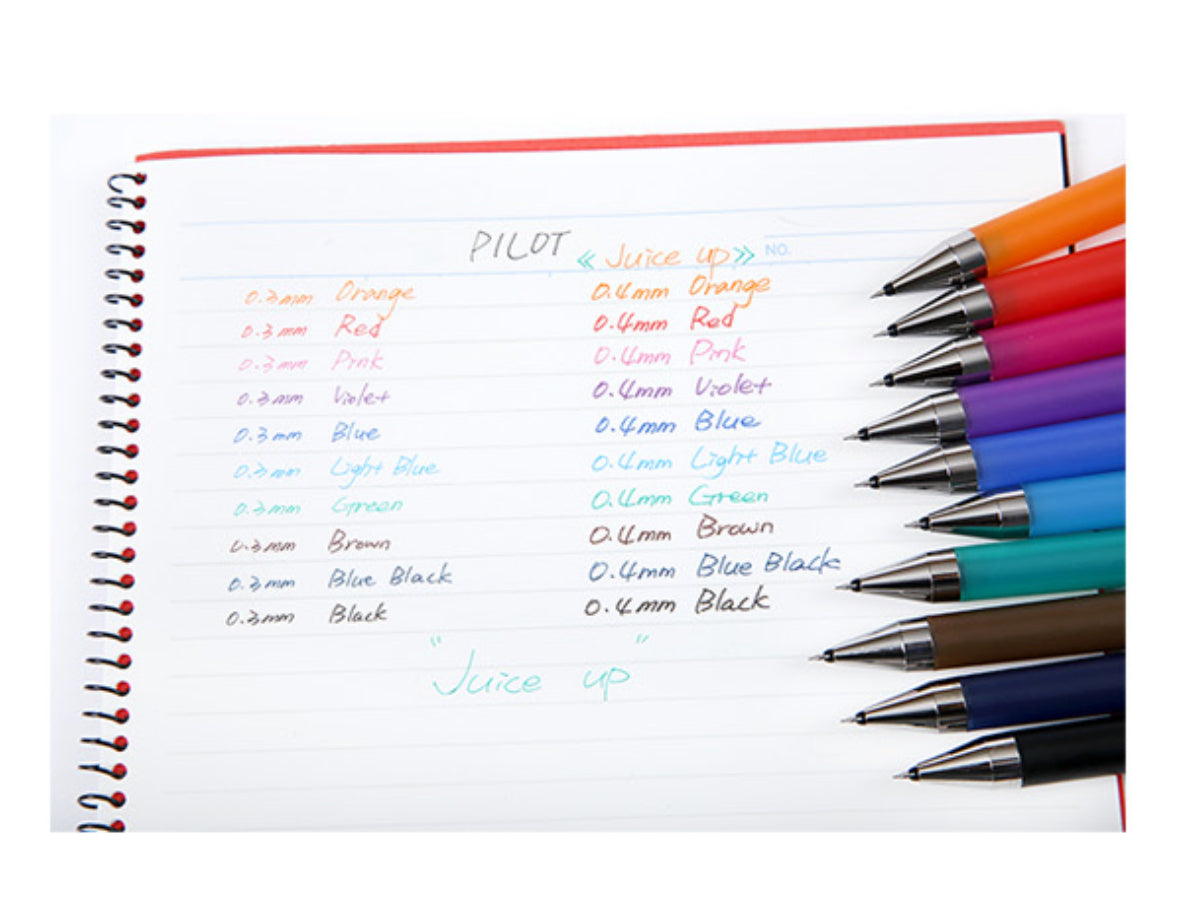 PILOT 《Juice up》 NO.
0.3mm Orange 0.4mm Orange
0.3mm Red 0.4mm Red
0.3mm Pink 0.4mm Pink
0.3mm Violet 0.4mm Violet
0.3mm Blue 0.4mm Blue
0.3mm Light Blue 0.4mm Light Blue
0.3mm Green 0.4mm Green
0.3mm Brown 0.4mm Brown
0.3mm Blue Black 0.4mm Blue Black
0.3mm Black 0.4mm Black
"Juice up"